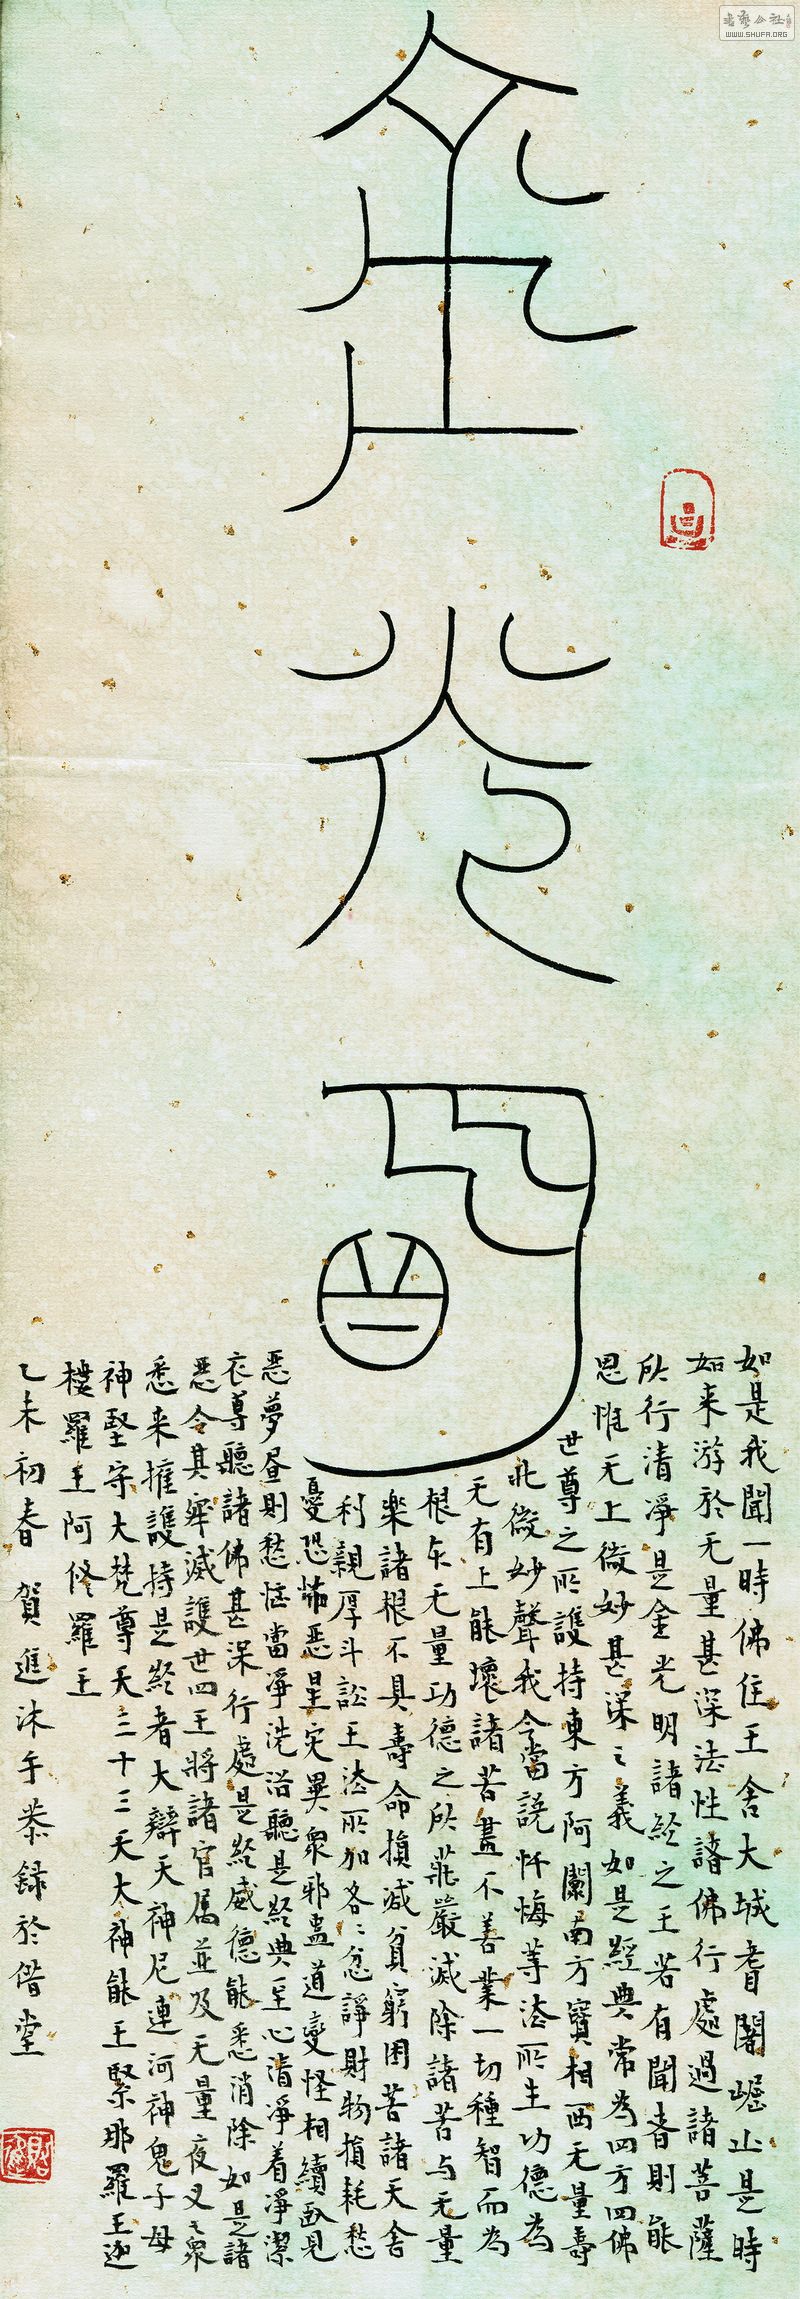 金光明
如是我聞一時佛住王舍大城耆闍崛山是時
如来游於无量甚深法性諸佛行處過諸菩薩
所行清淨是金光明諸經之王若有聞者則能
思惟无上微妙甚深之義如是經典常為四方四佛
世尊之所護持東方阿閦南方寶相西无量壽
北微妙聲我今當説懺悔等法所生功德為
无有上能壞諸苦盡不善業一切種智而為
根本无量功德之所莊嚴滅除諸苦与无量
樂諸根不具壽命損減貧窮困苦諸天舍
利親厚斗訟王法所加各〻忿諍財物損耗愁
憂恐怖惡星灾異衆邪蛊道變怪相續卧見
惡夢昼則愁恼當淨洗浴聽是經典至心清淨着淨潔
衣專聽諸佛甚深行處是經威德能悉消除如是諸
惡令其寂滅護世四王將諸官属並及无量夜叉之衆
悉来擁護持是經者大辯天神尼連河神鬼子母
神堅守大梵尊天三十三天大神能王緊那羅王迦
樓羅王阿修羅王
乙未初春 賀進沐手恭録於借堂
WWW.SHUFA.ORG